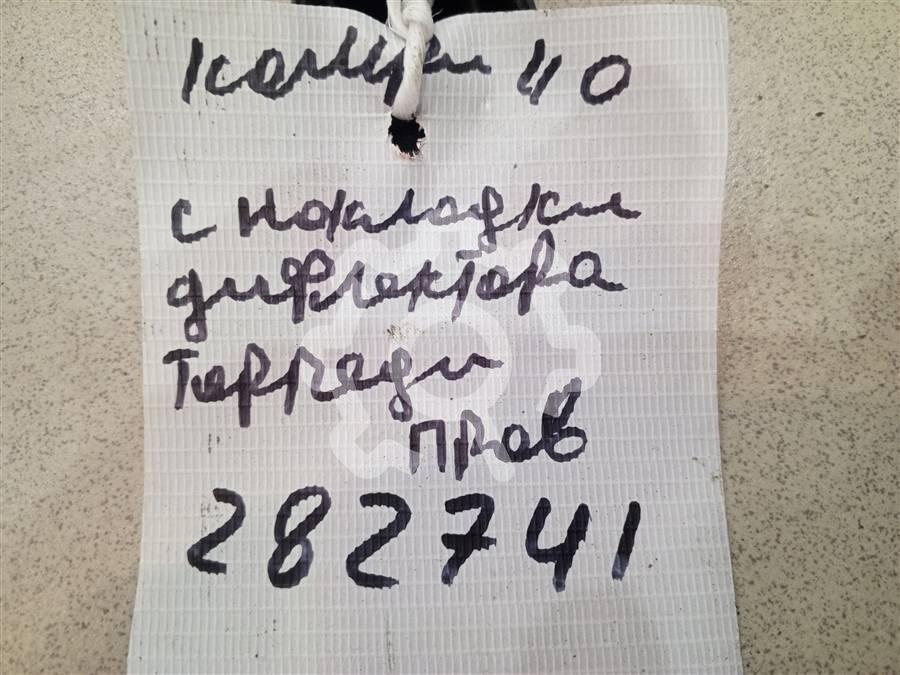 Камри 40
с нокладки
дифлектора
Торпеди
прав
282741